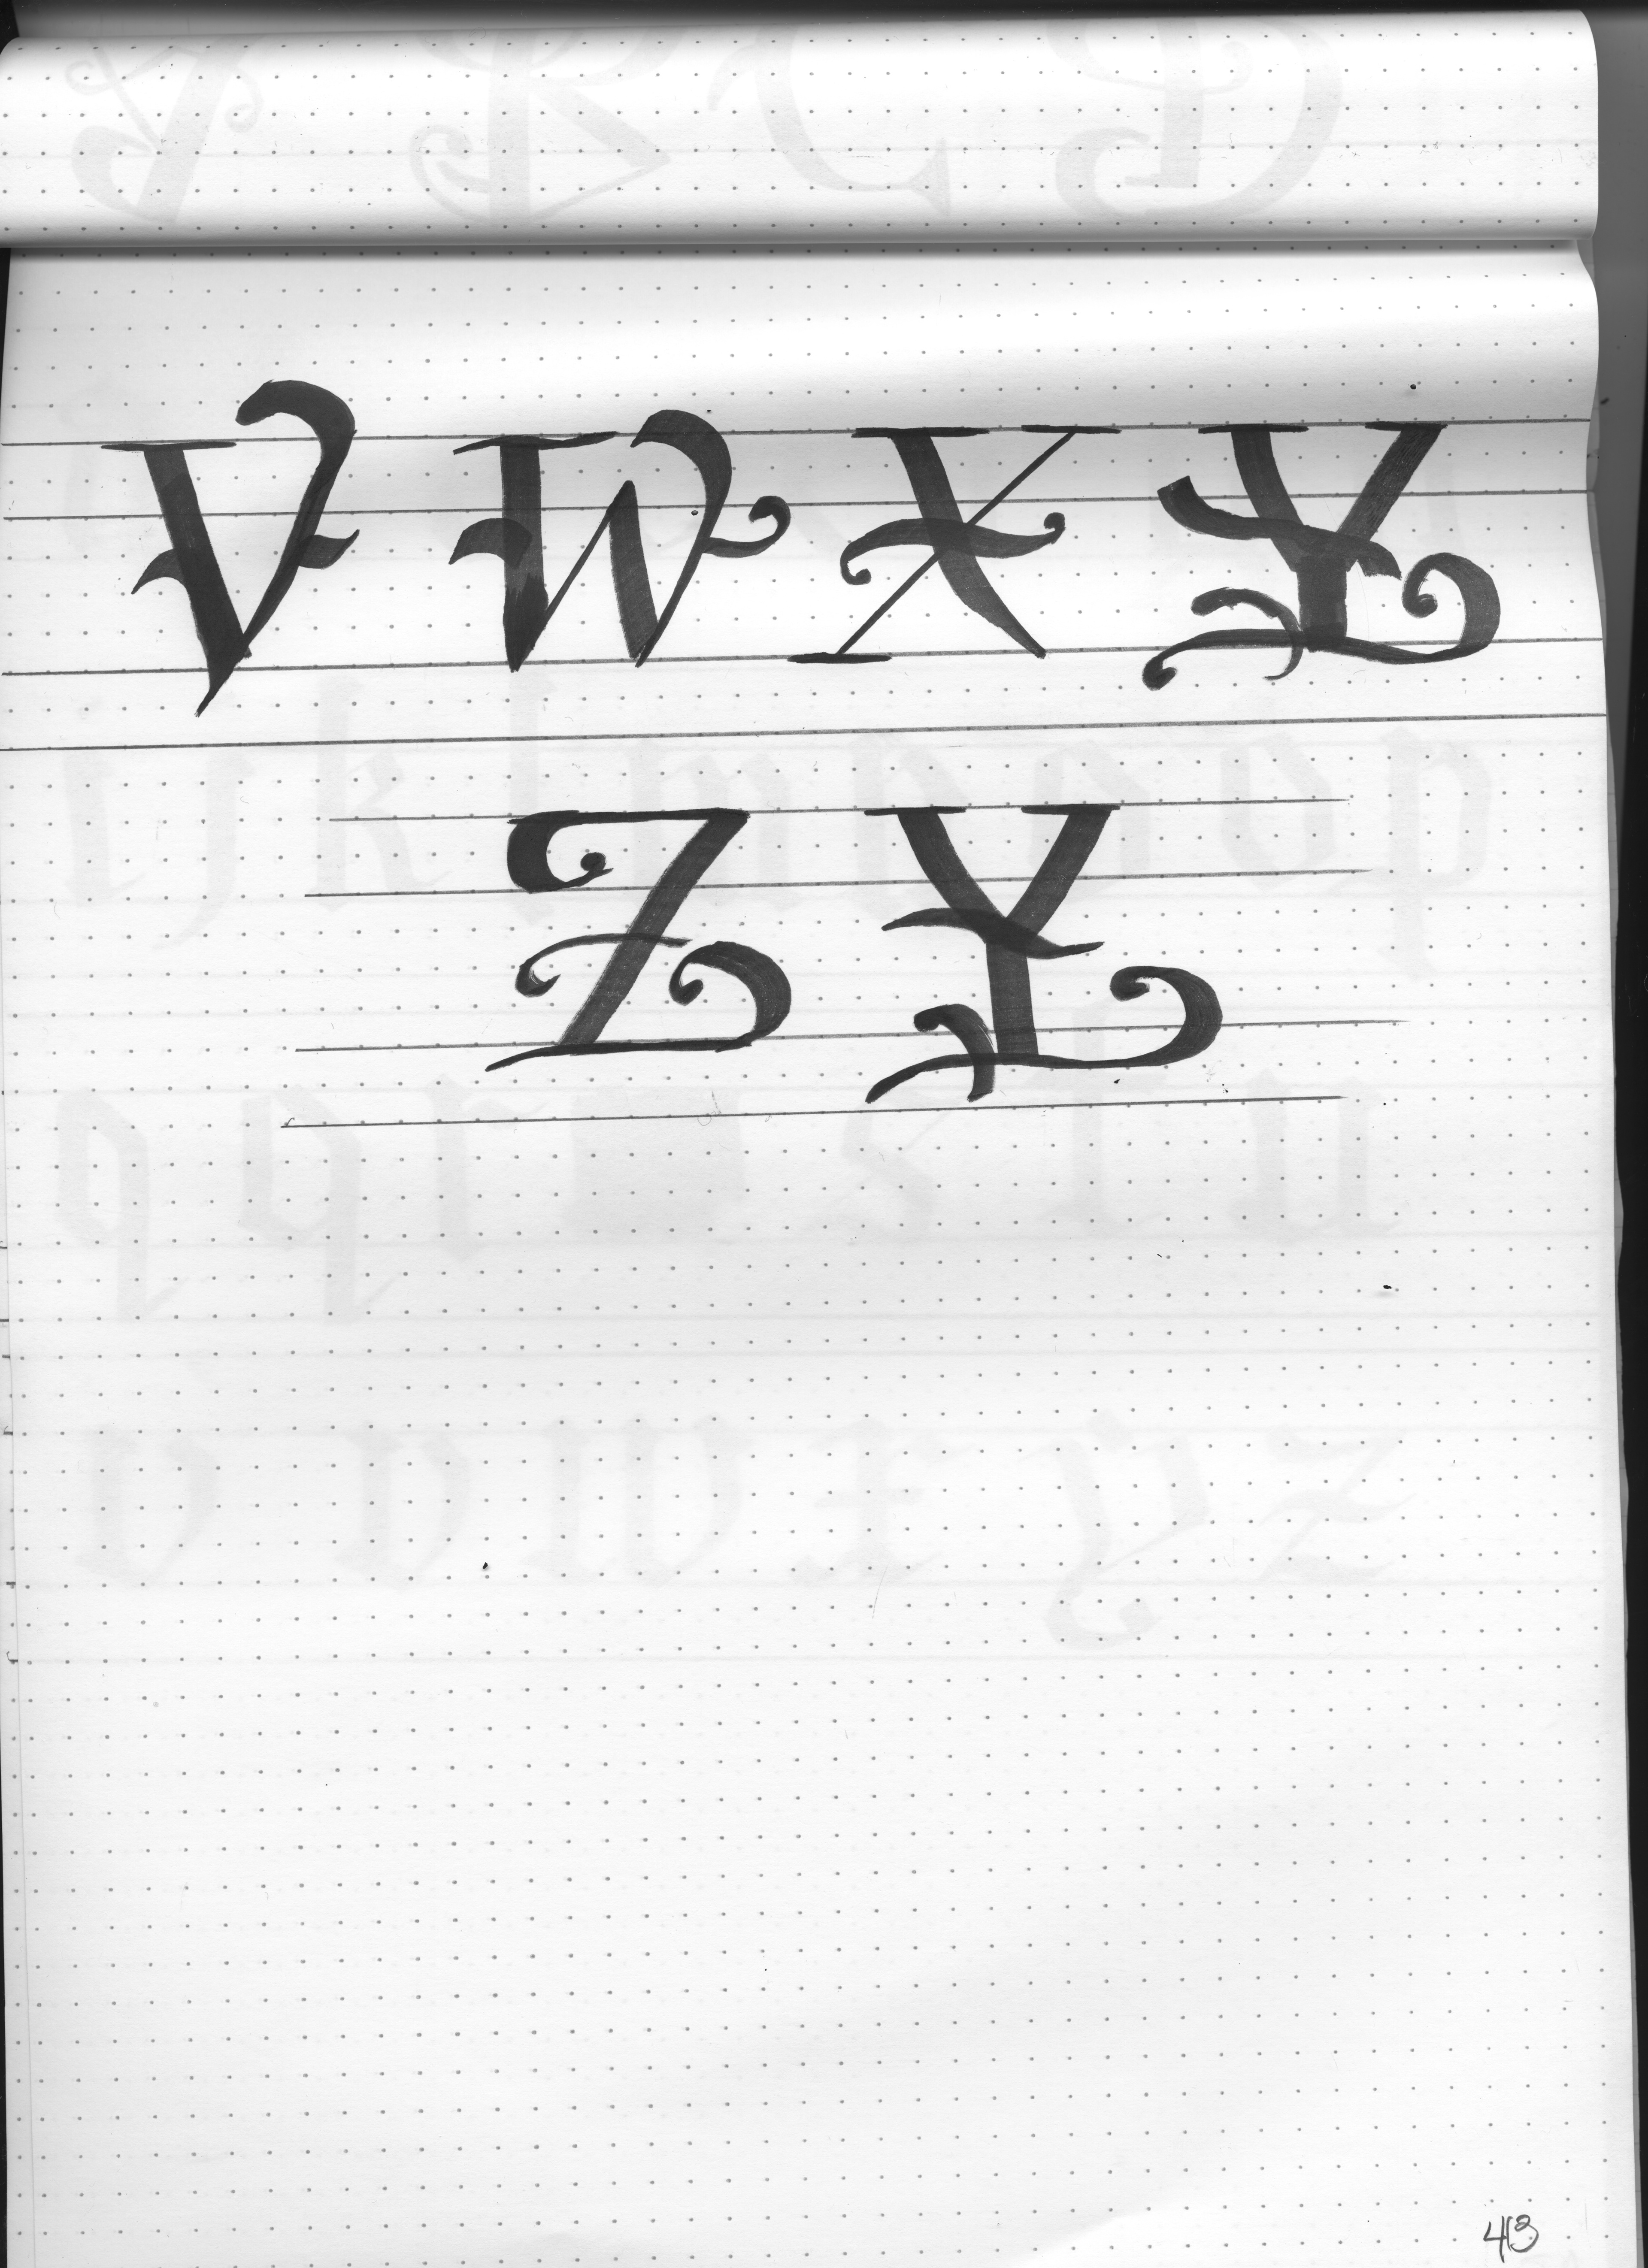 V W X Y
Z Y
413